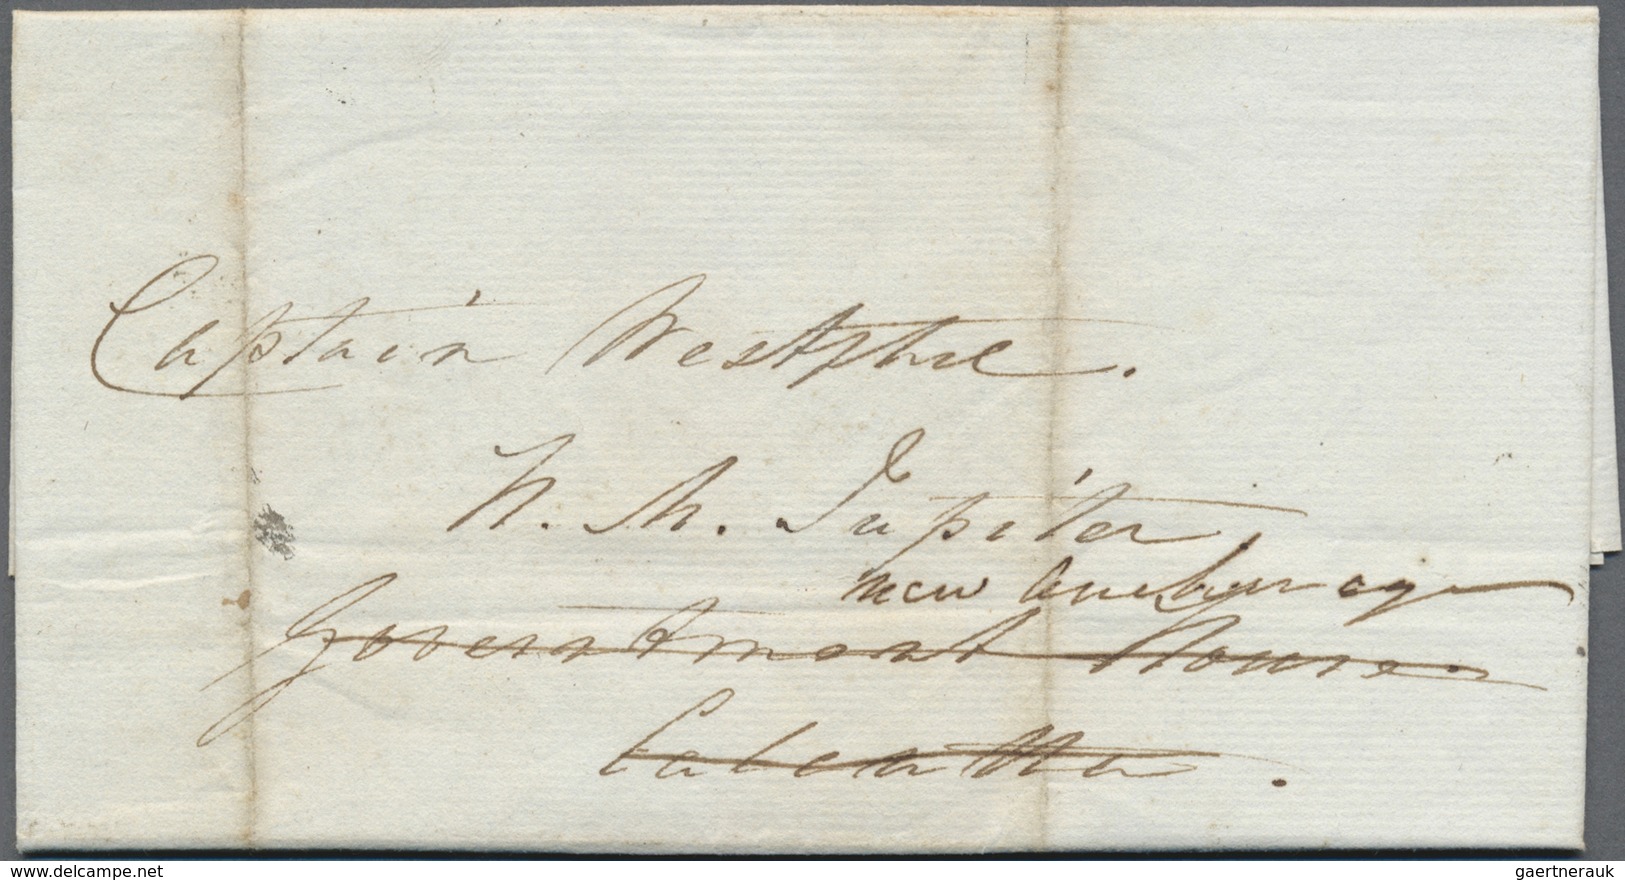 Captain Westphe.
H. M. Jupiter
new anchorage
Government House
Calcutta.
www.delcampe.net
gaertnerauk